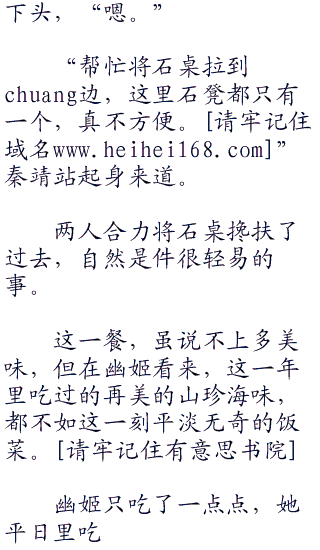 下头，“嗯。”
“帮忙将石桌拉到
chuang边，这里石凳都只有
一个，真不方便。[请牢记住
域名www.heihei168.com]”
秦靖站起身来道。
两人合力将石桌搀扶了
过去，自然是件很轻易的
事。
这一餐，虽说不上多美
味，但在幽姬看来，这一年
里吃过的再美的山珍海味，
都不如这一刻平淡无奇的饭
菜。[请牢记住有意思书院]
幽姬只吃了一点点，她
平日里吃